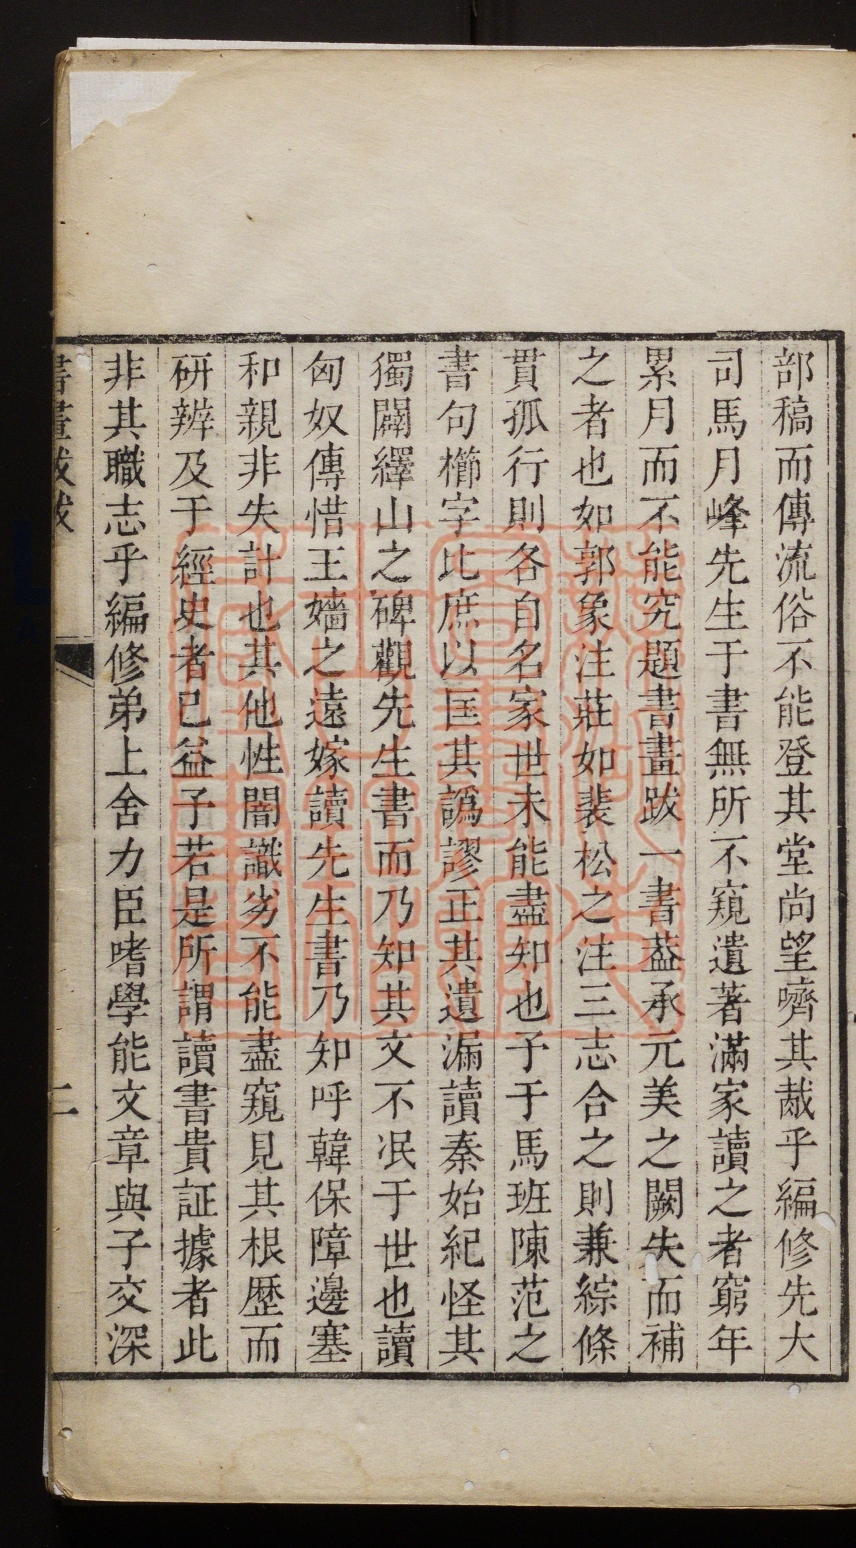 部稿而傳流俗不能登其堂尚望嚌其胾乎編修先大
司馬月峰先生于書無所不窺遺著滿家讀之者窮年
累月而不能究題書畫跋一書葢承元美之闕失而補
之者也如郭象注莊如裴松之注三志合之則兼綜條
貫孤行則各自名家世未能盡知也予于馬班陳范之
書句櫛字比庶以匡其譌謬正其遺漏讀秦始紀怪其
獨闕繹山之碑觀先生書而乃知其文不泯于世也讀
匈奴傳惜王嬙之遠嫁讀先生書乃知呼韓保障邊塞
和親非失計也其他性闇識劣不能盡窺見其根歷而
研辨及于經史者已益予若是所謂讀書貴証據者此
非其職志乎編修弟上舍力臣嗜學能文章與予交深
書畫跋跋
二